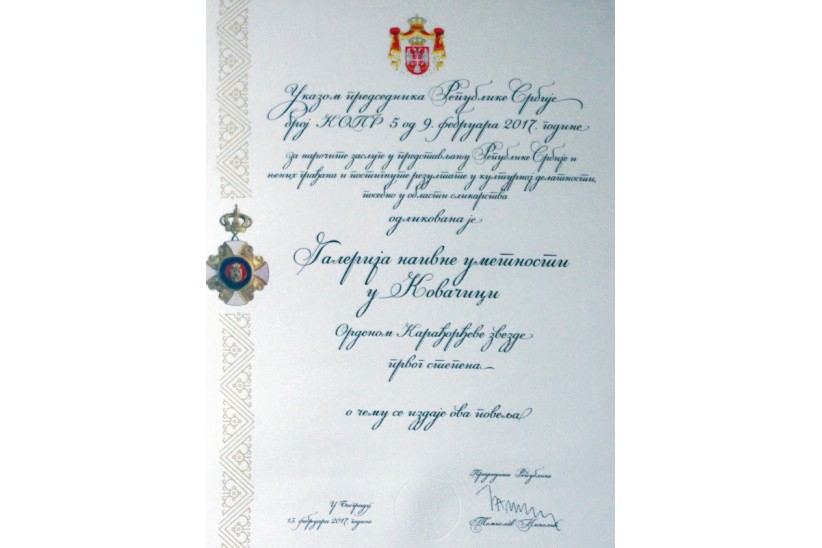 Указом председника Републике Србије
број КОПР 5 од 9. фебруара 2017. године
за нарочите заслуге у представљању Републике Србије и
њених грађана и постигнуте резултате у културној делатности,
посебно у области сликарства
одликована је
Галерија наивне уметности
у Ковачици
Орденом Карађорђеве звезде
првог степена
о чему се издаје ова повеља
Председник Републике
У Београду
15. фебруара 2017. године
Томислав Николић